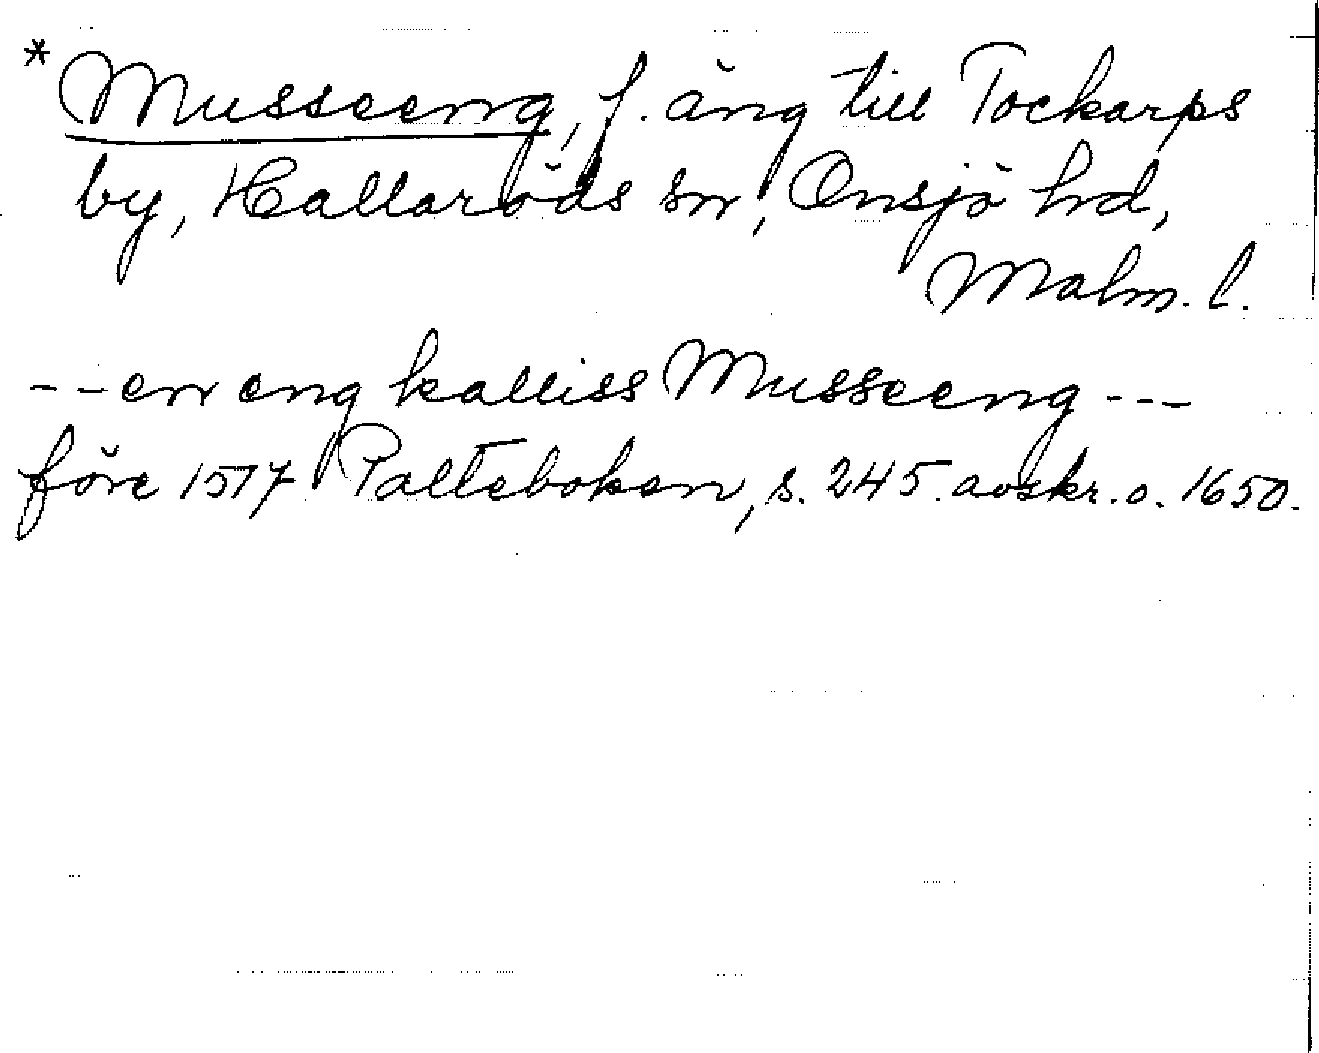 * Musseeng, f. äng till Tockarps
by, Hallaröds sn, Onsjö hd,
Malm. l.
-- en eng kalliss Musseeng ---
före 1517 Palteboken, s. 245. avskr. o. 1650.